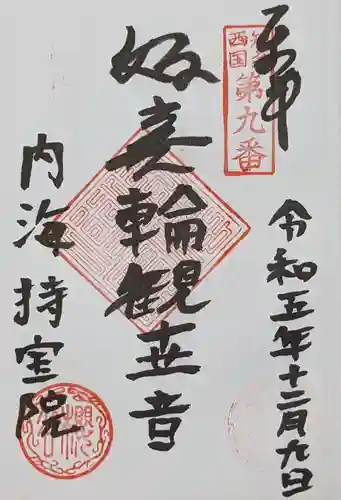 奉拝
西国
第九番
令和五年十二月九日
如意輪観世音
内海 持宝院